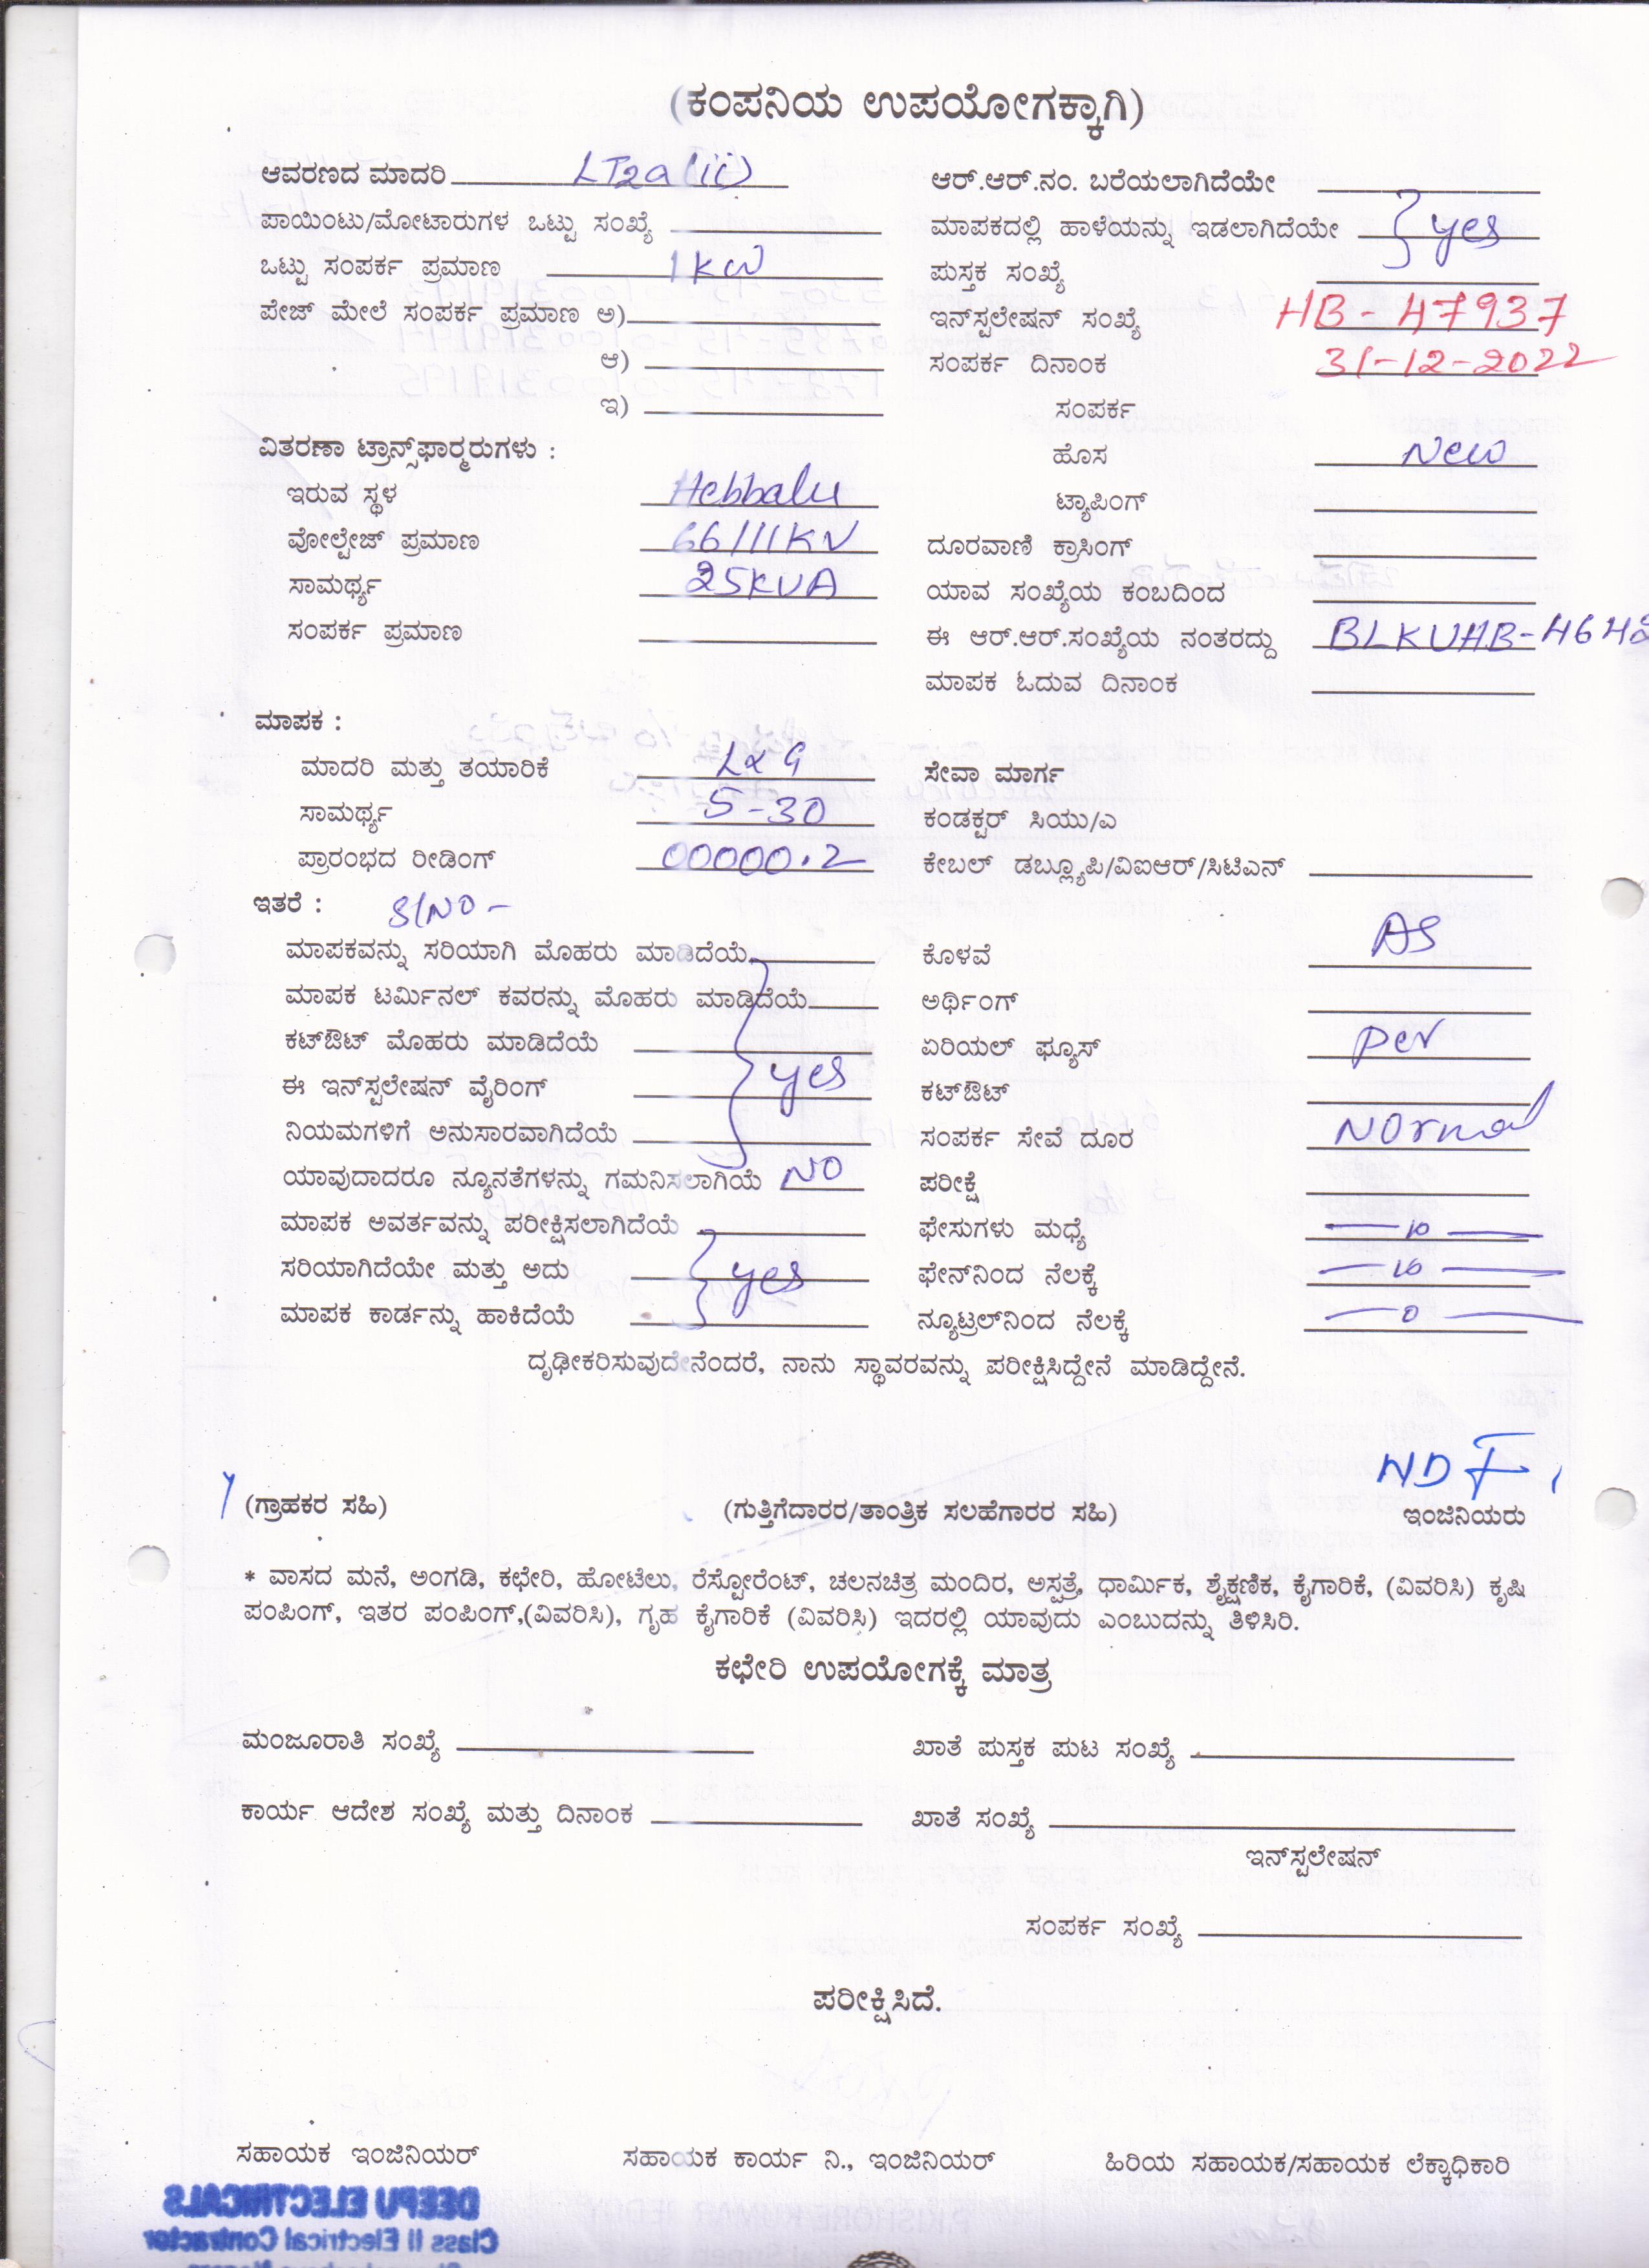 (ಕಂಪನಿಯ ಉಪಯೋಗಕ್ಕಾಗಿ)
ಆವರಣದ ಮಾದರಿ LT2a(ii)
ಪಾಯಿಂಟು/ಮೋಟಾರುಗಳ ಒಟ್ಟು ಸಂಖ್ಯೆ
ಒಟ್ಟು ಸಂಪರ್ಕ ಪ್ರಮಾಣ 1KW
ಪೇಜ್ ಮೇಲೆ ಸಂಪರ್ಕ ಪ್ರಮಾಣ ಅ)
ಆ)
ಇ)
ವಿತರಣಾ ಟ್ರಾನ್ಸ್‌ಫಾರ್‍ಮರುಗಳು :
ಇರುವ ಸ್ಥಳ Hebbalu
ವೋಲ್ಟೇಜ್ ಪ್ರಮಾಣ 66/11KV
ಸಾಮರ್ಥ್ಯ 25KVA
ಸಂಪರ್ಕ ಪ್ರಮಾಣ
ಆರ್.ಆರ್.ನಂ. ಬರೆಯಲಾಗಿದೆಯೇ
ಮಾಪಕದಲ್ಲಿ ಹಾಳೆಯನ್ನು ಇಡಲಾಗಿದೆಯೇ yes
ಪುಸ್ತಕ ಸಂಖ್ಯೆ
ಇನ್‌ಸ್ಟಲೇಷನ್ ಸಂಖ್ಯೆ HB-47937
ಸಂಪರ್ಕ ದಿನಾಂಕ 31-12-2022
ಸಂಪರ್ಕ
ಹೊಸ New
ಟ್ಯಾಪಿಂಗ್
ದೂರವಾಣಿ ಕ್ರಾಸಿಂಗ್
ಯಾವ ಸಂಖ್ಯೆಯ ಕಂಬದಿಂದ
ಈ ಆರ್.ಆರ್.ಸಂಖ್ಯೆಯ ನಂತರದ್ದು BLKUHB-4648
ಮಾಪಕ ಓದುವ ದಿನಾಂಕ
ಮಾಪಕ :
ಮಾದರಿ ಮತ್ತು ತಯಾರಿಕೆ L&G
ಸಾಮರ್ಥ್ಯ 5-30
ಪ್ರಾರಂಭದ ರೀಡಿಂಗ್ 00000.2
ಇತರೆ : S/NO-
ಮಾಪಕವನ್ನು ಸರಿಯಾಗಿ ಮೊಹರು ಮಾಡಿದೆಯೆ
ಮಾಪಕ ಟರ್ಮಿನಲ್ ಕವರನ್ನು ಮೊಹರು ಮಾಡಿದೆಯೆ
ಕಟ್‌ಔಟ್ ಮೊಹರು ಮಾಡಿದೆಯೆ
ಈ ಇನ್‌ಸ್ಟಲೇಷನ್ ವೈರಿಂಗ್ yes
ನಿಯಮಗಳಿಗೆ ಅನುಸಾರವಾಗಿದೆಯೆ
ಯಾವುದಾದರೂ ನ್ಯೂನತೆಗಳನ್ನು ಗಮನಿಸಲಾಗಿಯೆ NO
ಮಾಪಕ ಅವರ್ತವನ್ನು ಪರೀಕ್ಷಿಸಲಾಗಿದೆಯೆ
ಸರಿಯಾಗಿದೆಯೇ ಮತ್ತು ಅದು yes
ಮಾಪಕ ಕಾರ್ಡನ್ನು ಹಾಕಿದೆಯೆ
ಸೇವಾ ಮಾರ್ಗ
ಕಂಡಕ್ಟರ್ ಸಿಯು/ಎ
ಕೇಬಲ್ ಡಬ್ಲ್ಯೂಪಿ/ವಿಐಆರ್/ಸಿಟಿಎನ್
ಕೊಳವೆ AS
ಅರ್ಥಿಂಗ್
ಏರಿಯಲ್ ಫ್ಯೂಸ್ per
ಕಟ್‌ಔಟ್
ಸಂಪರ್ಕ ಸೇವೆ ದೂರ Normal
ಪರೀಕ್ಷೆ
ಫೇಸುಗಳು ಮಧ್ಯೆ — 10 —
ಫೇನ್‌ನಿಂದ ನೆಲಕ್ಕೆ — 10 —
ನ್ಯೂಟ್ರಲ್‌ನಿಂದ ನೆಲಕ್ಕೆ — 0 —
ದೃಢೀಕರಿಸುವುದೇನೆಂದರೆ, ನಾನು ಸ್ಥಾವರವನ್ನು ಪರೀಕ್ಷಿಸಿದ್ದೇನೆ ಮಾಡಿದ್ದೇನೆ.
(ಗ್ರಾಹಕರ ಸಹಿ) (ಗುತ್ತಿಗೆದಾರರ/ತಾಂತ್ರಿಕ ಸಲಹೆಗಾರರ ಸಹಿ) ಇಂಜಿನಿಯರು
* ವಾಸದ ಮನೆ, ಅಂಗಡಿ, ಕಛೇರಿ, ಹೋಟೆಲು, ರೆಸ್ಟೋರೆಂಟ್, ಚಲನಚಿತ್ರ ಮಂದಿರ, ಅಸ್ಪತ್ರೆ, ಧಾರ್ಮಿಕ, ಶೈಕ್ಷಣಿಕ, ಕೈಗಾರಿಕೆ, (ವಿವರಿಸಿ) ಕೃಷಿ
ಪಂಪಿಂಗ್, ಇತರ ಪಂಪಿಂಗ್,(ವಿವರಿಸಿ), ಗೃಹ ಕೈಗಾರಿಕೆ (ವಿವರಿಸಿ) ಇದರಲ್ಲಿ ಯಾವುದು ಎಂಬುದನ್ನು ತಿಳಿಸಿರಿ.
ಕಛೇರಿ ಉಪಯೋಗಕ್ಕೆ ಮಾತ್ರ
ಮಂಜೂರಾತಿ ಸಂಖ್ಯೆ ಖಾತೆ ಪುಸ್ತಕ ಪುಟ ಸಂಖ್ಯೆ
ಕಾರ್ಯ ಆದೇಶ ಸಂಖ್ಯೆ ಮತ್ತು ದಿನಾಂಕ ಖಾತೆ ಸಂಖ್ಯೆ
ಇನ್‌ಸ್ಟಲೇಷನ್
ಸಂಪರ್ಕ ಸಂಖ್ಯೆ
ಪರೀಕ್ಷಿಸಿದೆ.
ಸಹಾಯಕ ಇಂಜಿನಿಯರ್ ಸಹಾಯಕ ಕಾರ್ಯ ನಿ., ಇಂಜಿನಿಯರ್ ಹಿರಿಯ ಸಹಾಯಕ/ಸಹಾಯಕ ಲೆಕ್ಕಾಧಿಕಾರಿ
DEEPU ELECTRICALS
Class II Electrical Contractor